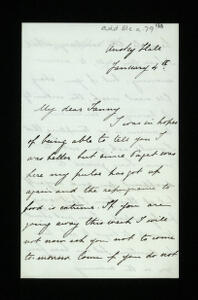 Add Ms a 79
Ansley Hall
January 4th.
My dear Fanny
I was in hopes
of being able to tell you I
was better but since Paget was
here my pulse has got up
again and the repugnance to
food is extreme. If you are
going away this week I will
not now ask you not to come
to-morrow
if you do not